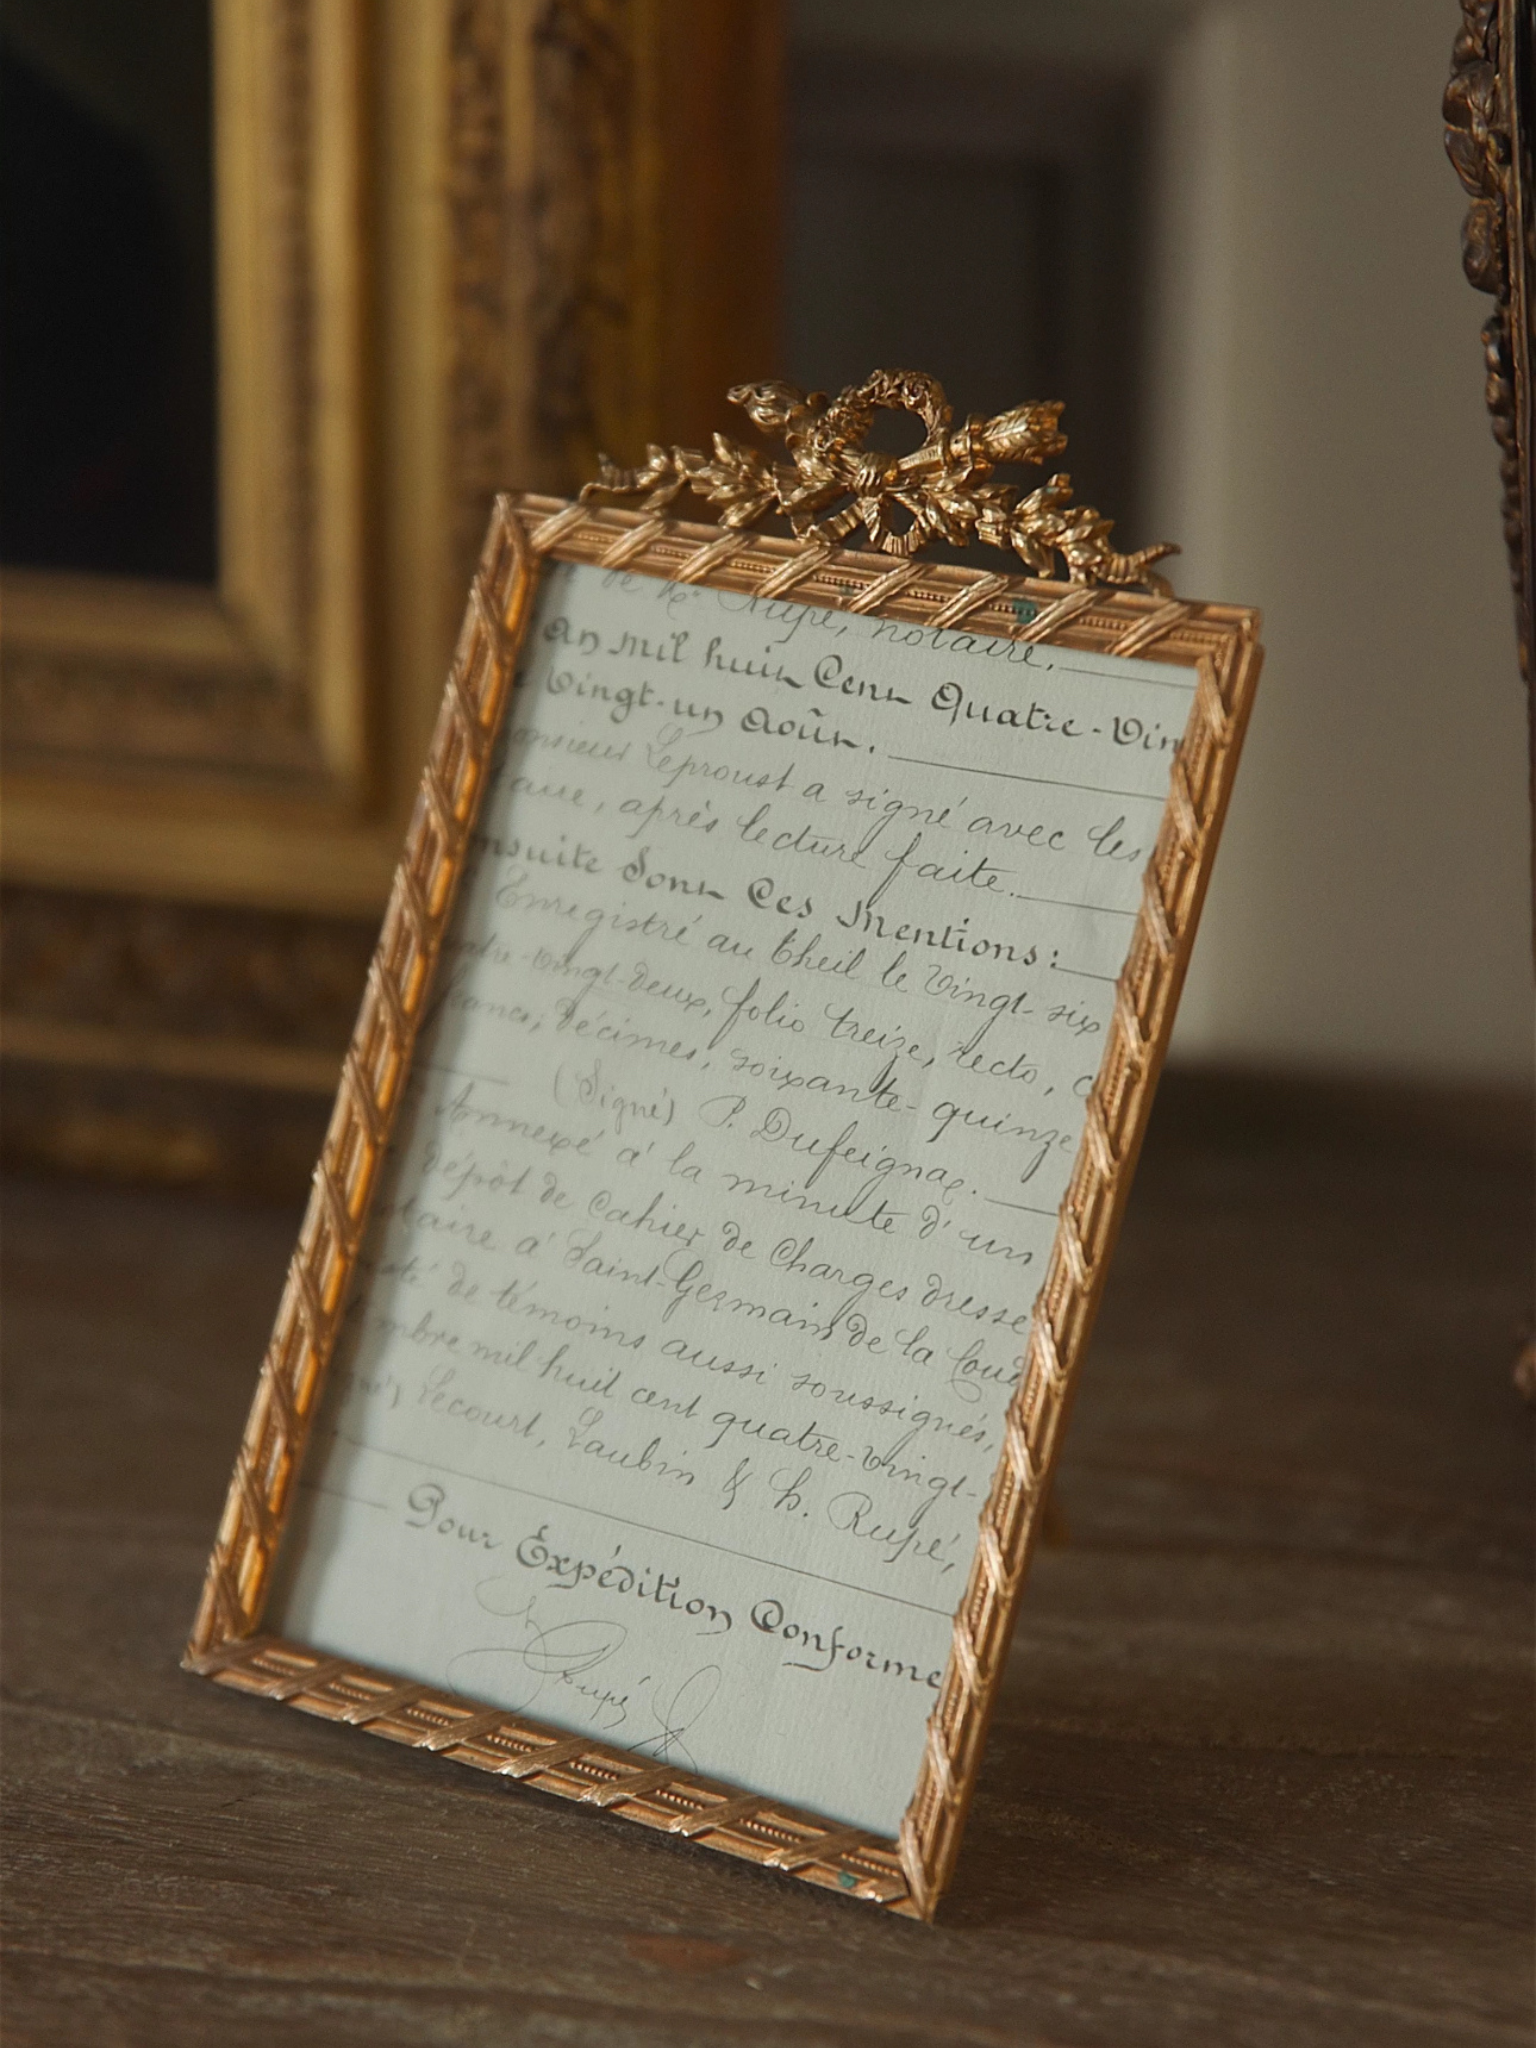 de Me Rupé, notaire.
an mil huit Cent Quatre-Vin
Vingt-un Août.
onsieur Leproust a signé avec les
aire, après lecture faite.
nsuite Sont Ces Mentions:
Enregistré au Theil le Vingt-six
atre-vingt-deux, folio treize, recto, c
francs, décimes, soixante-quinze
(Signé) P. Dufeignax.
Annexé à la minute d'un
dépôt de Cahier de Charges dressé
otaire à Saint-Germain de la Coud
isté de témoins aussi soussignés,
mbre mil huit cent quatre-vingt-
Lecourt, Laubin & h. Rupé,
Pour Expédition Conforme
Rupé